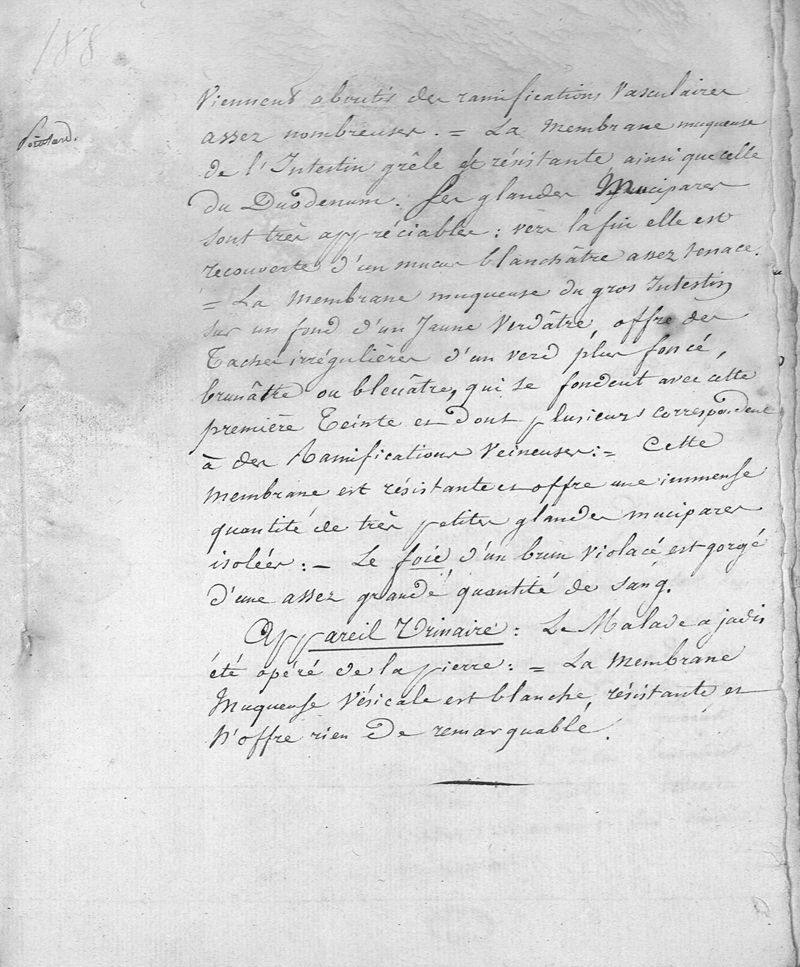 188
viennent aboutir des ramifications vasculaires
assez nombreuses. = La Membrane muqueuse
de l'Intestin grêle est résistante ainsi que celle
du Duodenum. Ses glandes Mucipares
sont très appréciables : vers la fin elle est
recouverte d'un mucus blanchâtre assez tenace.
= La Membrane muqueuse du gros Intestin
sur un fond d'un Jaune Verdâtre, offre des
Taches irrégulières d'un verd plus foncé,
brunâtre ou bleuâtre, qui se fondent avec cette
première Teinte et dont plusieurs correspondent
à des Ramifications Veineuses := Cette
Membrane est résistante et offre une immense
quantité de très petites glandes mucipares
isolées : = Le foie, d'un brun violacé est gorgé
d'une assez grande quantité de sang.
Appareil Urinaire : Le Malade a jadis
été opéré de la pierre : = La Membrane
Muqueuse Vésicale est blanche, résistante et
N'offre rien de remarquable.